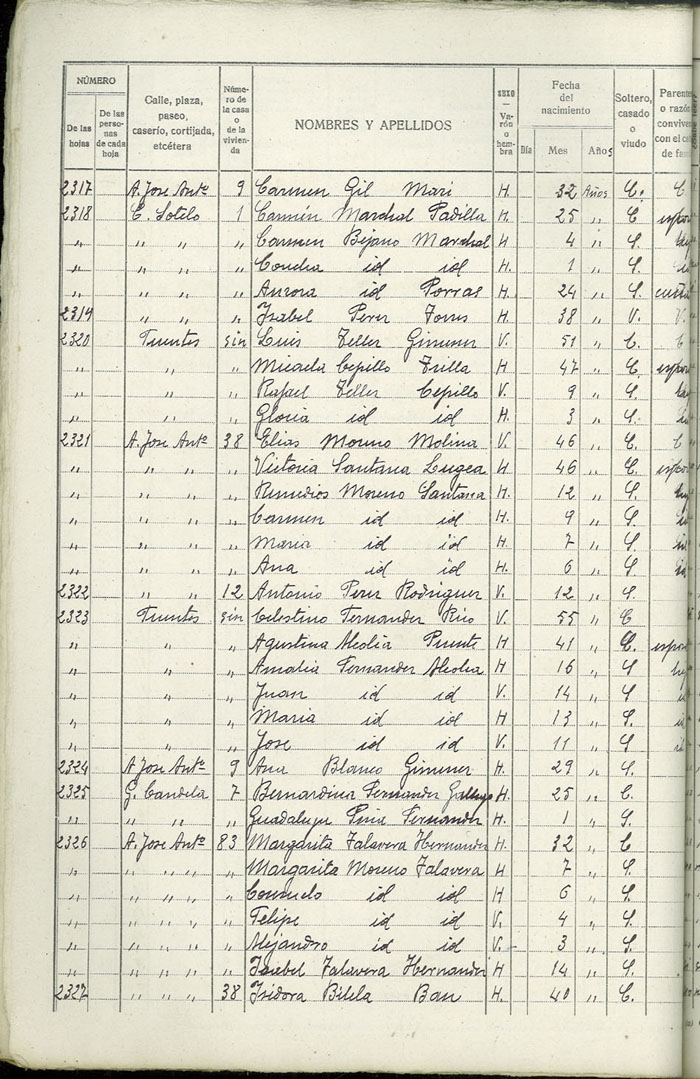 NÚMERO
De las hojas
De las perso- nas de cada hoja
Calle, plaza, paseo, caserío, cortijada, etcétera
Núme- ro de la casa o de la vivien- da
NOMBRES Y APELLIDOS
SEXO — Va- rón o hem- bra
Fecha del nacimiento
Día
Mes
Años
Soltero, casado o viudo
Parente
o razón
convivenc
con el ca
de fam
2317 A. Jose Antº 9 Carmen Gil Mari H. 32 Años C. C
2318 C. Sotelo 1 Carmin Marchal Padilla H 25 „ C espos
„ „ „ „ Carmen Bejano Marchal H 4 „ S.
„ „ „ „ Concha id id H. 1 „ S.
„ „ „ „ Aurora id Porras H 24 „ S. cuña
2319 „ „ „ Isabel Perez Torres H 38 „ V. V.
2320 Fuentes sin Luis Teller Gimenez V. 51 „ C.
„ „ „ Micaela Cepillo Trilla H 47 „ C. espos
„ „ „ Rafael Teller Cepillo V. 9 „ S.
„ „ „ Gloria id id H. 3 „ S.
2321 A. Jose Antº 38 Elias Moreno Molina V. 46 „ C. C
„ „ „ „ Victoria Santana Lugea H 46 „ C. espos
„ „ „ „ Remedios Moreno Santana H. 12 „ S.
„ „ „ „ Carmen id id H. 9 „ S.
„ „ „ „ Maria id id H. 7 „ S.
„ „ „ „ Ana id id H. 6 „ S.
2322 „ „ 12 Antonio Perez Rodriguez V. 12 „ S.
2323 Fuentes sin Celestino Fernandez Rico V. 55 „ C
„ „ „ Agustina Alcolia Puente H 41 „ C. espos
„ „ „ Amalia Fernandez Alcolea H 16 „ S
„ „ „ Juan id id V. 14 „ S
„ „ „ Maria id id H 13 „ S.
„ „ „ Jose id id V. 11 „ S
2324 A Jose Antº 9 Ana Blanco Gimenez H. 29 „ S.
2325 G. Candela 7 Bernardina Fernandez Gallego H. 25 „ C.
„ „ „ „ Guadalupe Fernandez H. 1 „ S.
2326 A. Jose Antº 83 Margarita Talavera Hernandez H 32 „ C
„ „ „ „ „ Margarita Moreno Talavera H 7 „ S.
„ „ „ „ „ Consuelo id id H 6 „ S.
„ „ „ „ „ Felipe id id V. 4 „ S.
„ „ „ „ „ Alejandro id id V. 3 „ S.
„ „ „ „ „ Isabel Talavera Hernandez H 14 „ S.
2327 „ „ „ 38 Isidora Bilela Ban H. 40 „ C.